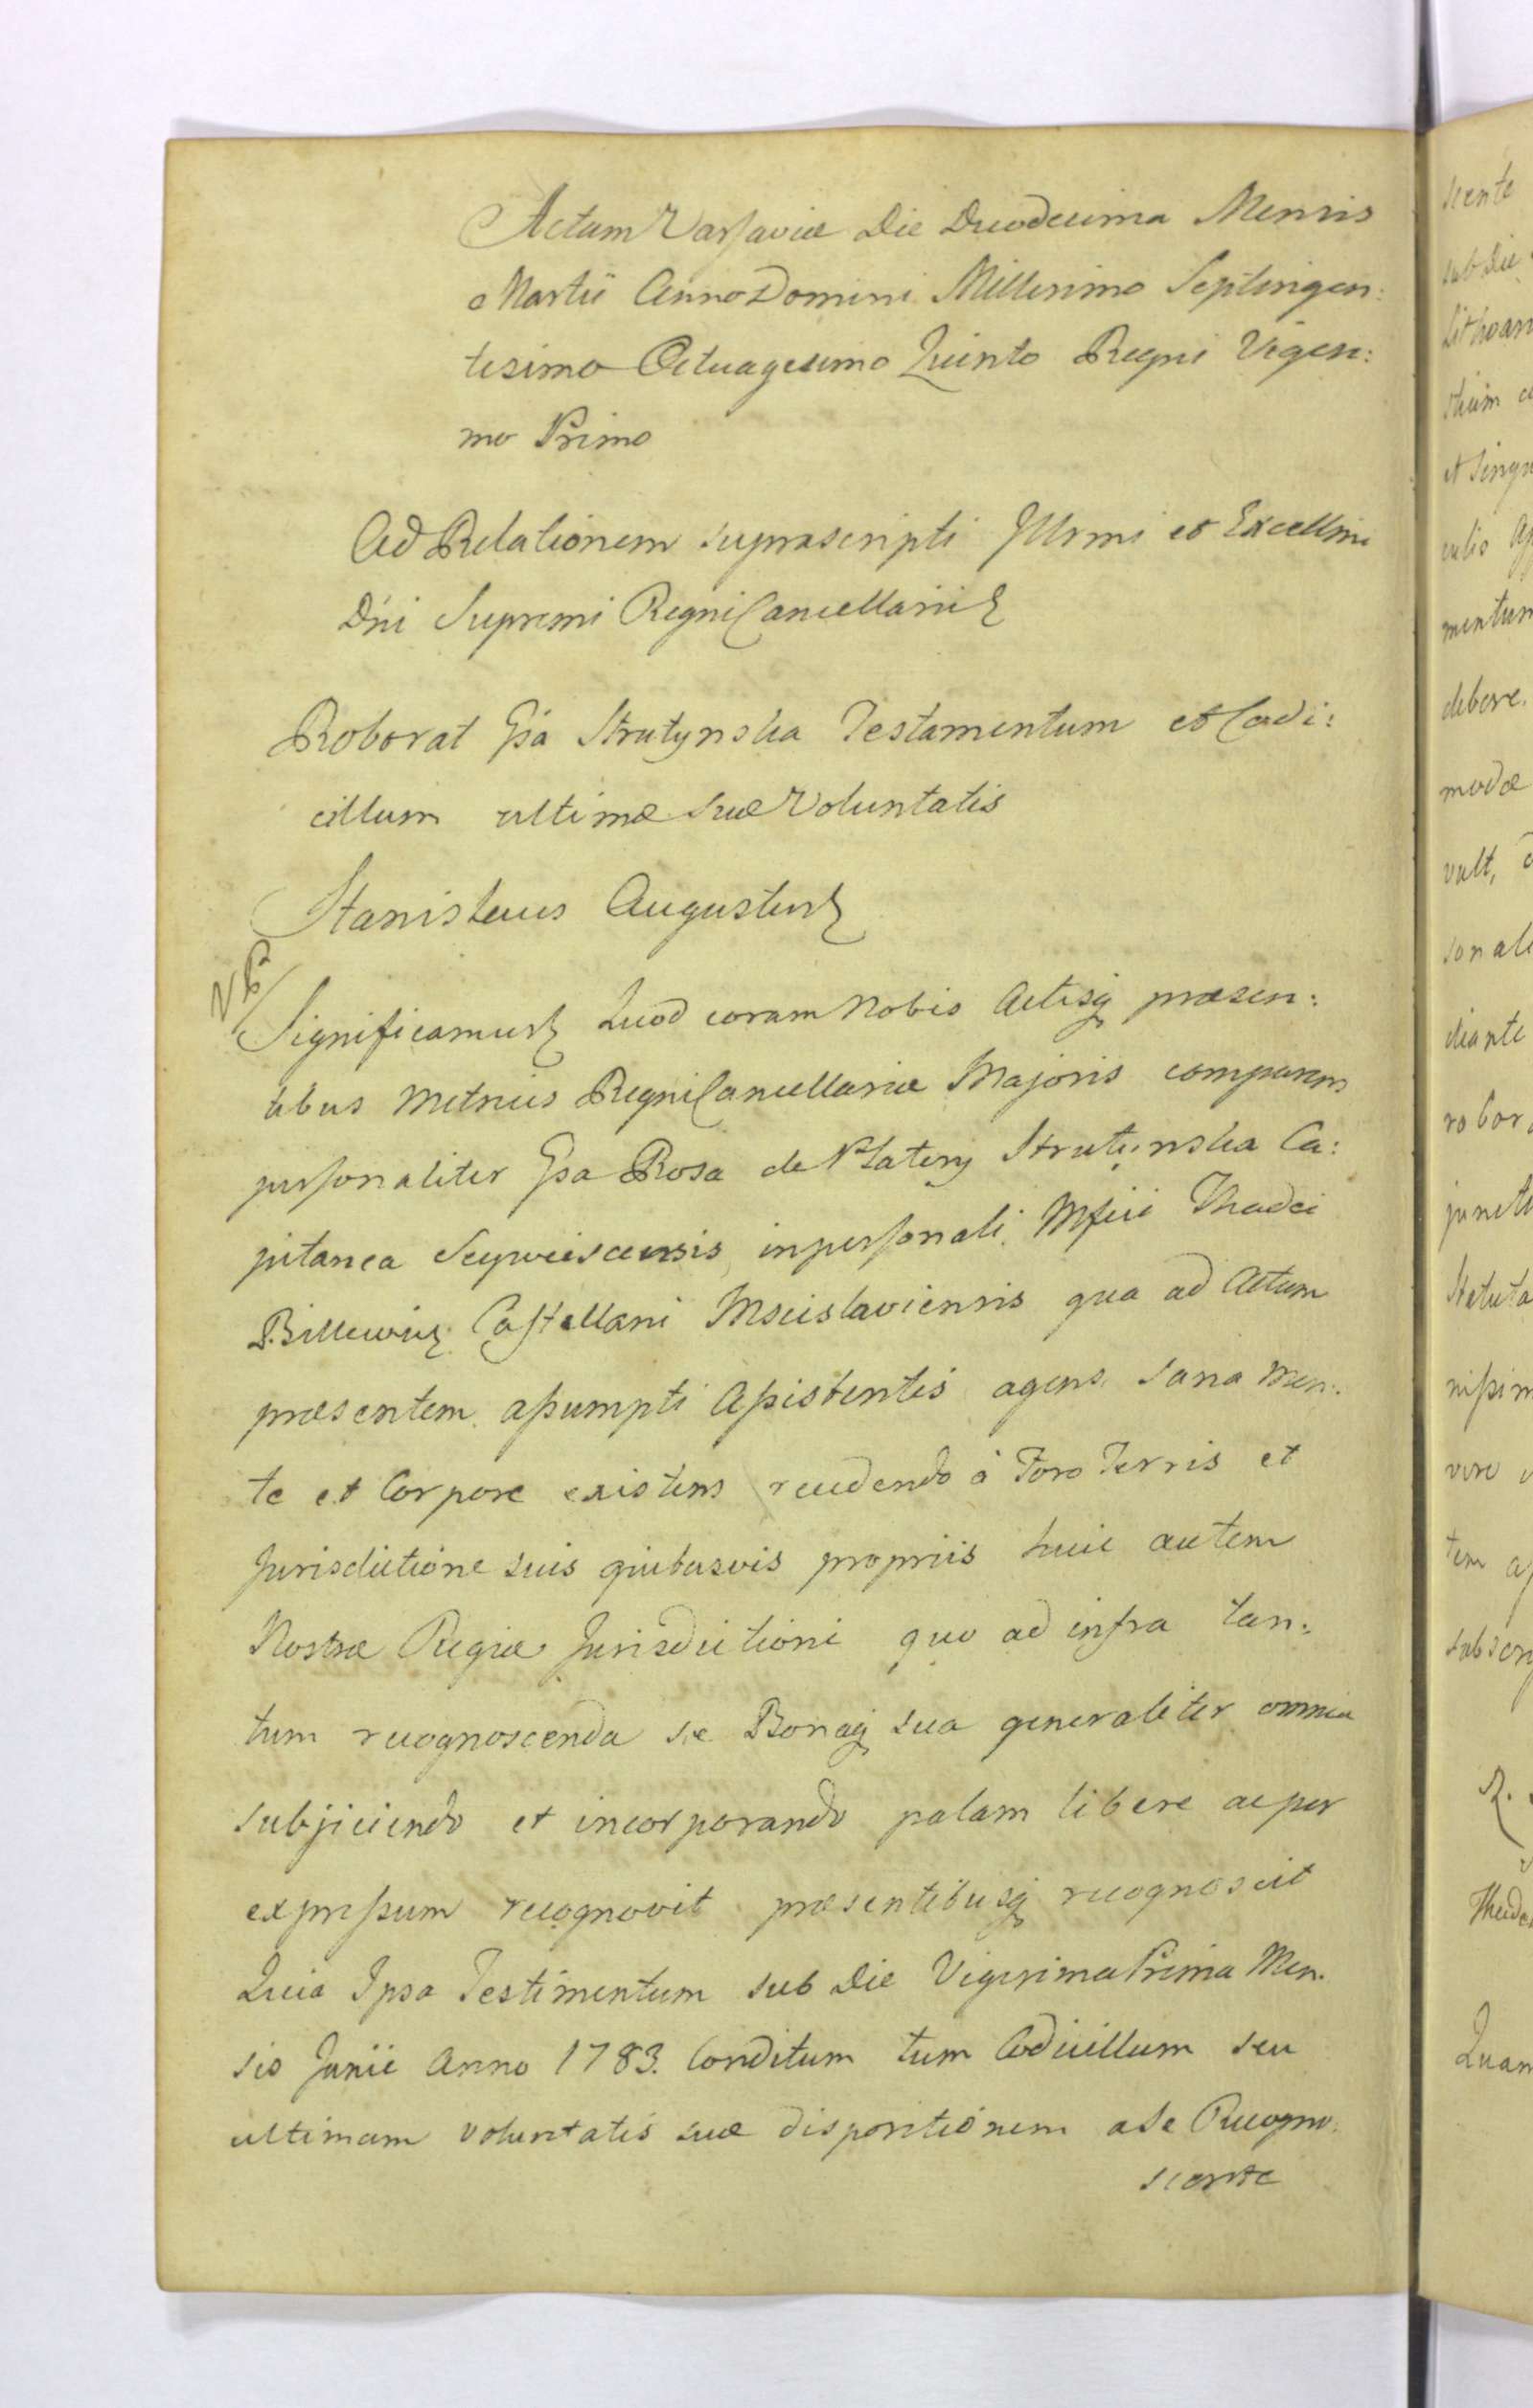 Actum Varsaviæ Die Duodecima Mensis
Martii Anno Domini Millesimo Septingen:
tesimo Octuagesimo Quinto Regni Vigesi:
mo Primo
Ad Relationem suprascripti Illrmi et Excellmi
Dni Supremi Regni Cancellarii
Roborat Gsa Strutynska Testamentum et Codi:
cillum ultimæ suæ Voluntatis
Stanislaus Augustus
Significamus Quod coram Nobis Actisq præsen:
tibus Metrices Regni Cancellariæ Majoris comparens
personaliter Gsa Rosa de Platery Strutynska Ca:
pitanea in personali Mfici Thadei
Billewicz Castellani Mscislaviensis qua ad Actum
præsentem assumpti Assistentis agens sana Men:
te et Corpore existens recedendo à Foro Terris et
Jurisdictione suis quibusvis propriis huic autem
Nostræ Regiæ Jurisdictioni quo ad infra tan:
tum recognoscenda se Bonaq sua generaliter omnia
subjiciendo et incorporando palam libere ac per
expressum recognovit præsentibusq recognoscit
Quia Ipsa Testimentum sub Die Vigesima Prima Men.
sis Junii Anno 1783. Conditum tum Codicillum seu
ultimam voluntatis suæ dispositionem a Se Recogno.
scente